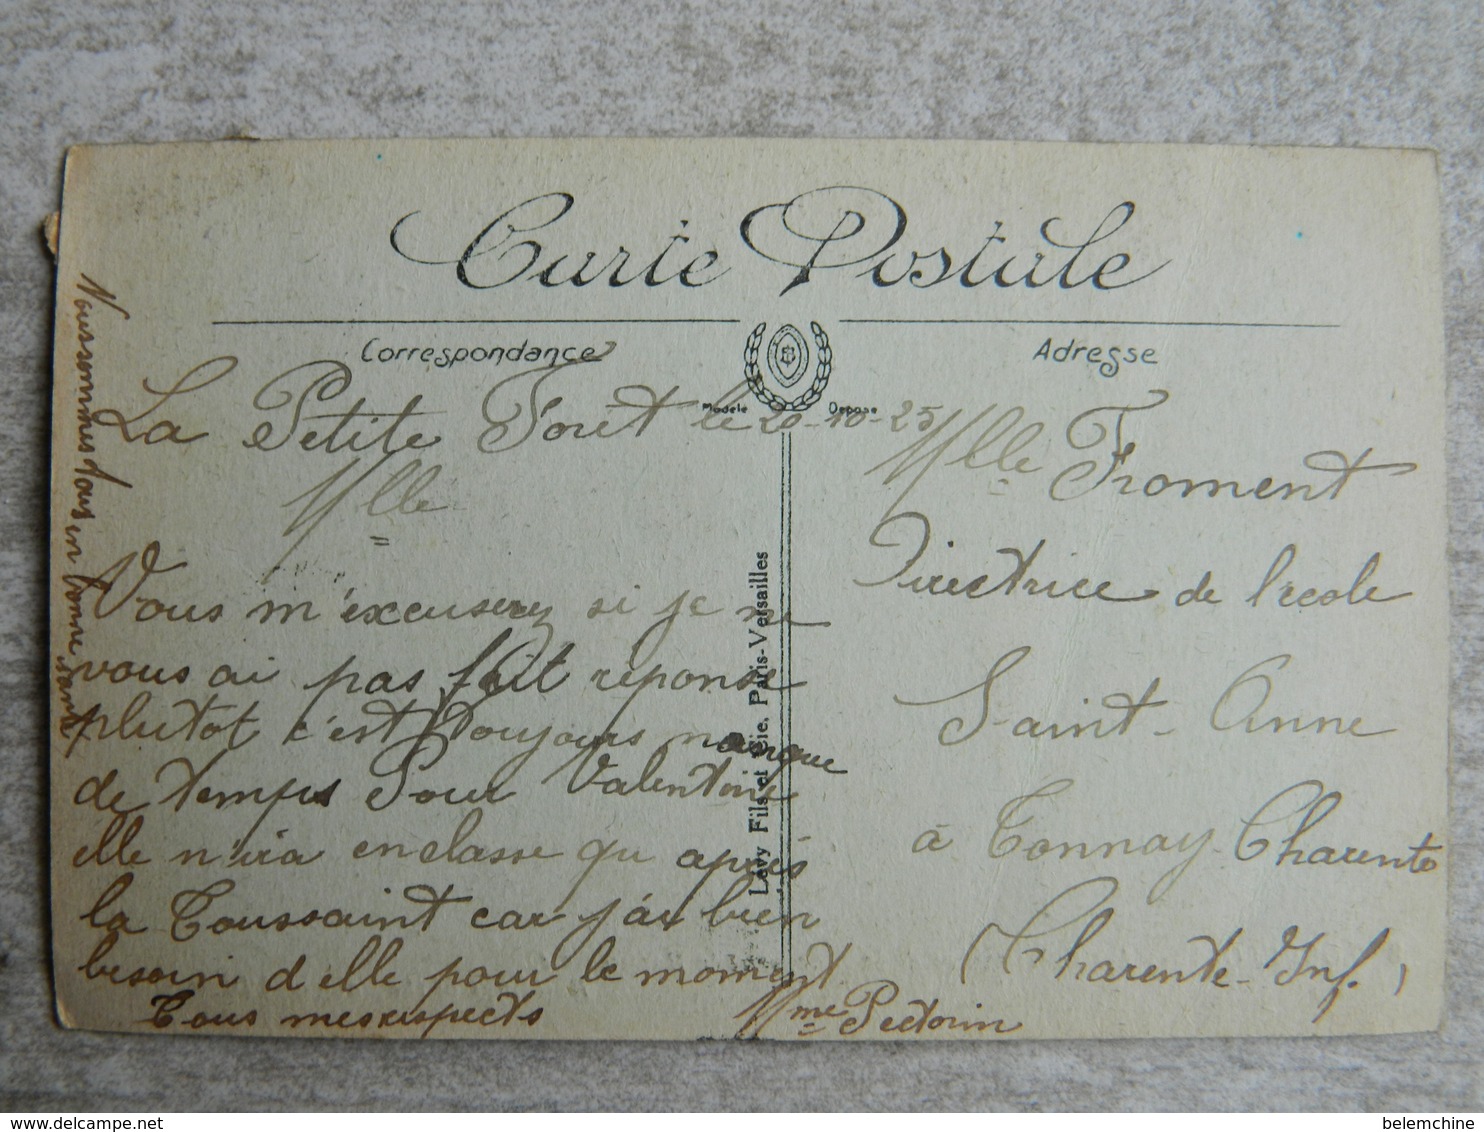 Carte Postale
Correspondance
Adresse
Modèle Déposé
La Petite Foret le 20-10-25
Mlle
Vous m'excuserez si je ne
vous ai pas fait réponse
plutot c'est toujours manque
de temps Pour Valentine
elle n'ira en classe qu après
la Toussaint car j'ai bien
besoin d elle pour le moment
Tous mes respects
Mme Pectorin
Nous sommes tous en bonne santé
Lévy Fils et Cie, Paris-Versailles
Mlle Froment
Directrice de l'ecole
Saint-Anne
à Tonnay-Charente
(Charente-Inf.)
belemchine